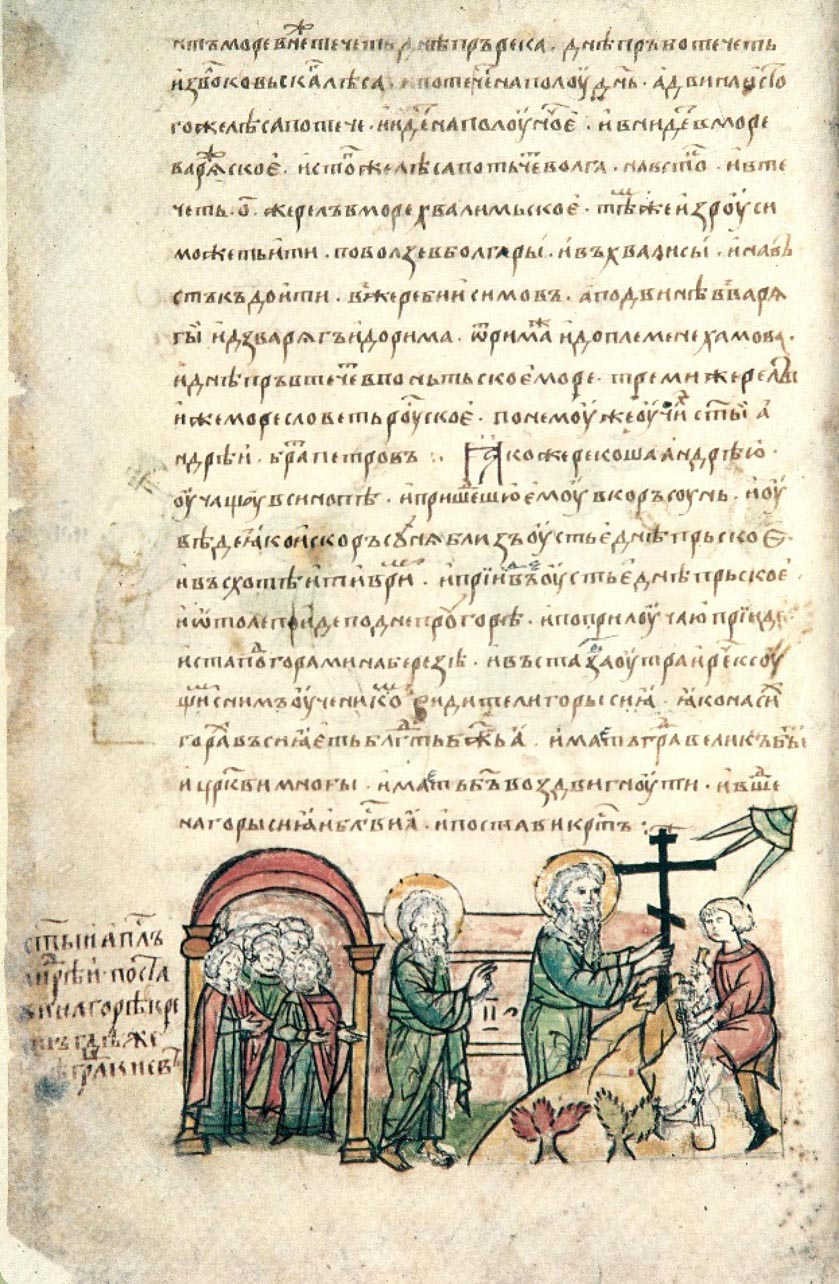 нтъ море в͠нет течеть днѣпръ река. днѣпръ бо течеть
из воковьска лѣса. и потечеⷩ на полоуднь. а двина ис то
гоже лѣса потече. и идеⷮ на полоуночⷭ҇е. и внидеⷮ в море
варяⷤское. ис тоⷢже лѣса потьчеⷮ волга. на встоⷦ. и вте
четь. о҃. жерелъ в море хвалимьское. тѣⷨже и из роуси
можеть ити. по волзе в болгары. и въ хвалисы. и на въ
стъкъ доити. в жребии симовъ. а по двинѣ в варя
гы и дз варягъ и до рима. ѿ римаⷤ и до племене хамова.
и днѣпръ втечеⷮ в поньтьское море. треми жерелы
иже море словеть роуⷭское. по немоу же оучиⷧ ст҃ыи а
ндрѣи. браⷮ петровъ :. Ꙗкоже рекоша андрѣю.
оучащоу в синопѣ. и пришеⷣшю емоу в корьсоунь. и оу
вѣде ꙗко ис корьсуня близъ оустье днѣпрьское.
и въсхотѣ ити в риⷨ. и прїиⷣ въ оустье днѣпрьское.
и ѿтоле поиде по днепроу горѣ. и по прилоучаю прїиде
и ста поⷣ горами на березѣ. и въстаⷡ заоутра и реⷱ к соу
щиⷨ с нимъ оученикоⷨ видите ли горы сиꙗ. ꙗко на сиⷯ
гораⷯ въсиꙗеть блгⷣть бж҃ьꙗ. имать граⷣ великъ быⷮ
и црк҃ви многы. имать бъ҃ воздвигноути. и въшеⷣ
на горы сиꙗ и блⷭви ꙗ. и постави крⷭтъ :
ст҃ыи апⷭлъ
андрѣи поста
ви на горѣ кре
стъ гдѣ же
граⷣ киевъ